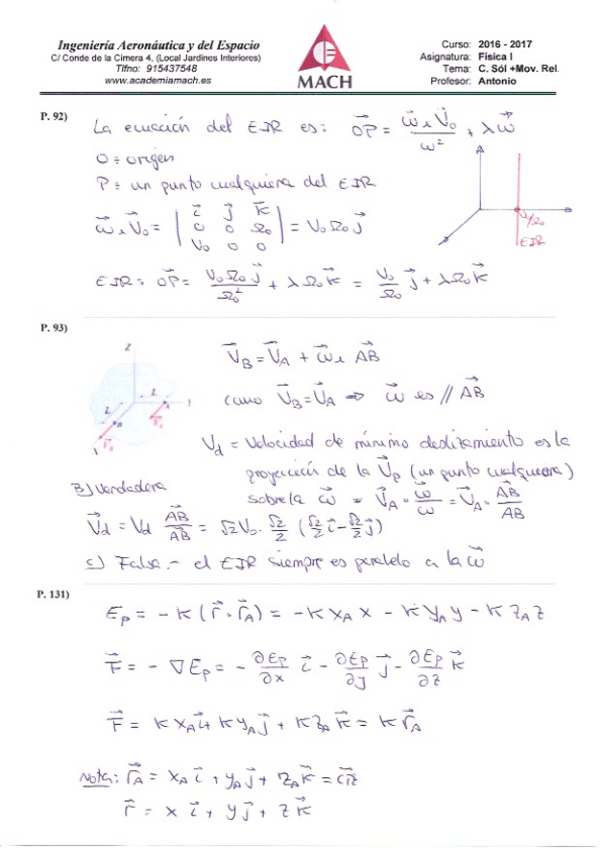 Ingeniería Aeronáutica y del Espacio
C/ Conde de la Cimera 4, (Local Jardines Interiores)
Tlfno: 915437548
www.academiamach.es
MACH
Curso: 2016 - 2017
Asignatura: Física I
Tema: C. Sól +Mov. Rel.
Profesor: Antonio
P. 92)
La ecuación del EIR es: \vec{OP} = \frac{\vec{ω} ∧ \vec{V}_0}{ω²} + λ\vec{ω}
O ≡ origen
P ≡ un punto cualquiera del EIR
\vec{ω} ∧ \vec{V}_0 = | \vec{i} \vec{j} \vec{k} ; 0 0 Ω_0 ; V_0 0 0 | = V_0 Ω_0 \vec{j}
V_0/Ω_0
EIR
EIR: \vec{OP} = \frac{V_0 Ω_0 \vec{j}}{Ω_0²} + λ Ω_0 \vec{k} = \frac{V_0}{Ω_0} \vec{j} + λ Ω_0 \vec{k}
P. 93)
Z
L
L
A
B
\vec{V}_B = \vec{V}_A + \vec{ω} ∧ \vec{AB}
como \vec{V}_B = \vec{V}_A ⇒ \vec{ω} es // \vec{AB}
V_d = Velocidad de mínimo deslizamiento es la
proyección de la \vec{V}_P (un punto cualquiera)
sobre la \vec{ω} = \vec{V}_A · \frac{\vec{ω}}{ω} = \vec{V}_A · \frac{\vec{AB}}{AB}
B) Verdadera
\vec{V}_d = V_d \frac{\vec{AB}}{AB} = √2 V_0 · \frac{√2}{2} (\frac{√2}{2} \vec{i} - \frac{√2}{2} \vec{j})
c) Falsa.- el EIR siempre es paralelo a la \vec{ω}
P. 131)
E_p = - K (\vec{r} · \vec{r}_A) = - K x_A x - K y_A y - K z_A z
\vec{F} = - ∇E_p = - \frac{∂E_p}{∂x} \vec{i} - \frac{∂E_p}{∂y} \vec{j} - \frac{∂E_p}{∂z} \vec{k}
\vec{F} = K x_A \vec{i} + K y_A \vec{j} + K z_A \vec{k} = K \vec{r}_A
Nota: \vec{r}_A = x_A \vec{i} + y_A \vec{j} + z_A \vec{k} = \vec{cte}
\vec{r} = x \vec{i} + y \vec{j} + z \vec{k}